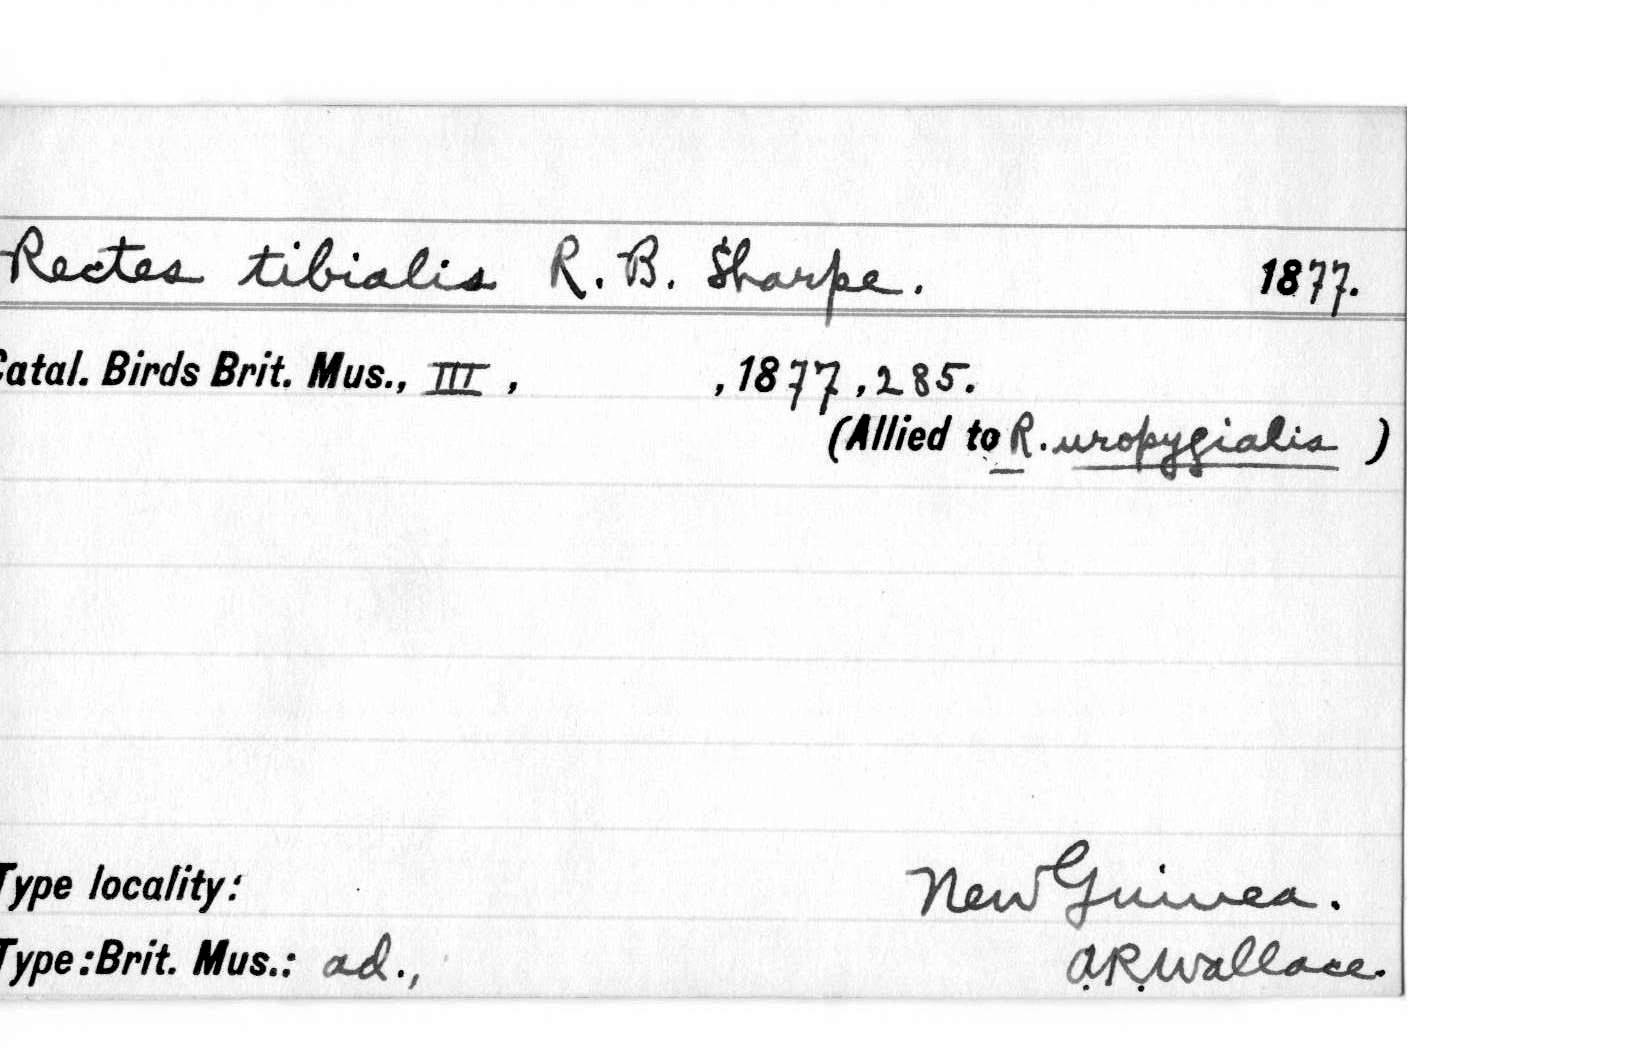 Rectes tibialis R. B. Sharpe. 1877.
Catal. Birds Brit. Mus., III , , 1877 , 285.
(Allied to R. uropygialis )
Type locality: New Guinea.
Type: Brit. Mus.: ad., A.R. Wallace.